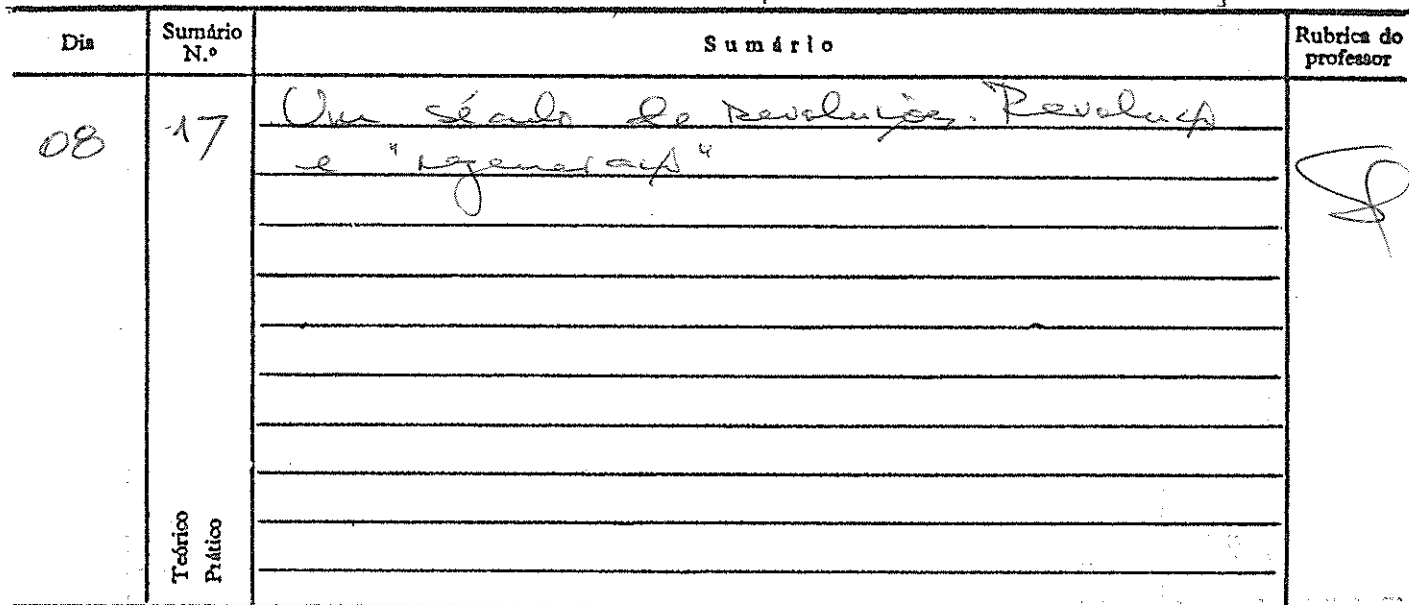 Dia
Sumário
N.º
Sumário
Rubrica do
professor
08
17
Um século de revoluções. Revolução
e "regeneração"
Teórico
Prático